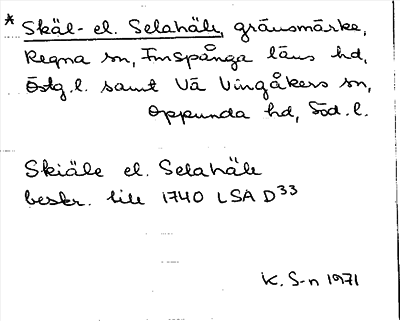 * Skäl- el. Selahäle, gränsmärke,
Regna sn, Finspånga läns hd,
Östg.l. samt Vä Vingåkers sn,
Oppunda hd, Söd.l.
Skiäle el. Selahäle
beskr. tile 1740 LSA D33
K. S-n 1971